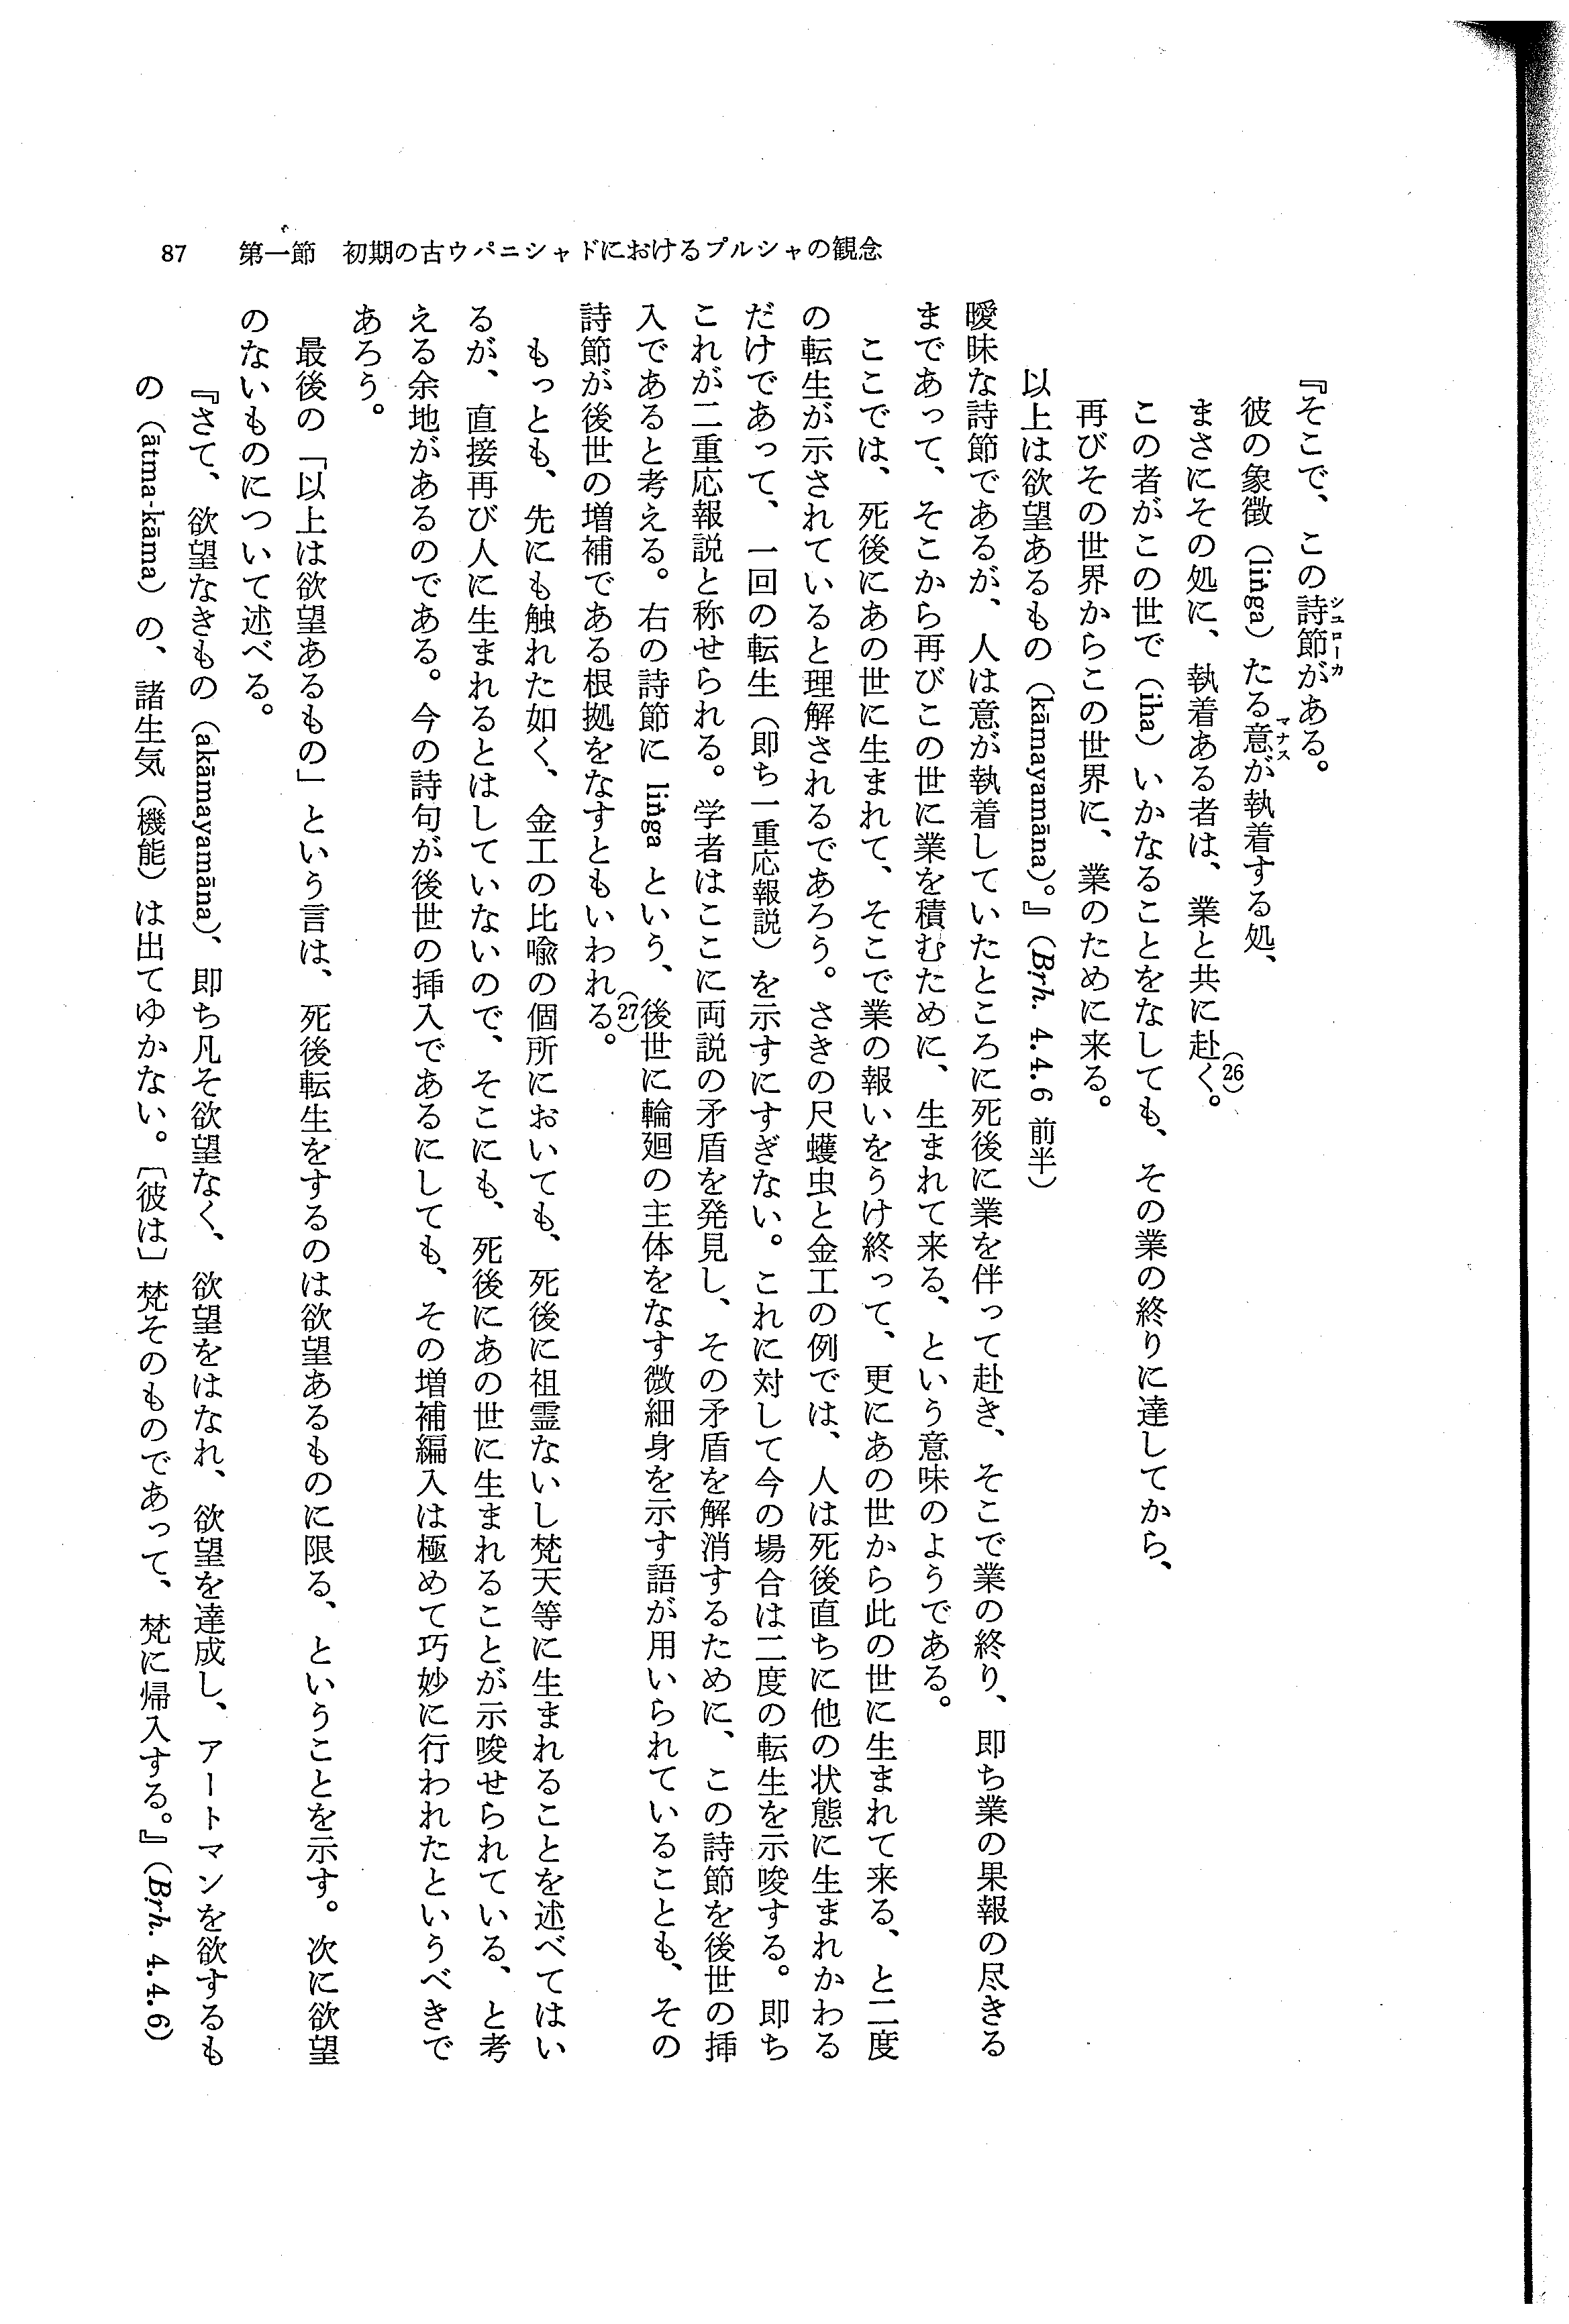 87　第一節　初期の古ウパニシャドにおけるプルシャの観念
『そこで、この詩節がある。
シュローカ
彼の象徴（liṅga）たる意が執着する処、
マナス
まさにその処に、執着ある者は、業と共に赴く。
(26)
この者がこの世で（iha）いかなることをなしても、その業の終りに達してから、
再びその世界からこの世界に、業のために来る。
以上は欲望あるもの（kāmayamāna）。』（Bṛh. 4.4.6 前半）
曖昧な詩節であるが、人は意が執着していたところに死後に業を伴って赴き、そこで業の終り、即ち業の果報の尽きる
まであって、そこから再びこの世に業を積むために、生まれて来る、という意味のようである。
ここでは、死後にあの世に生まれて、そこで業の報いをうけ終って、更にあの世から此の世に生まれて来る、と二度
の転生が示されていると理解されるであろう。さきの尺蠖虫と金工の例では、人は死後直ちに他の状態に生まれかわる
だけであって、一回の転生（即ち一重応報説）を示すにすぎない。これに対して今の場合は二度の転生を示唆する。即ち
これが二重応報説と称せられる。学者はここに両説の矛盾を発見し、その矛盾を解消するために、この詩節を後世の挿
入であると考える。右の詩節に liṅga という、後世に輪廻の主体をなす微細身を示す語が用いられていることも、その
詩節が後世の増補である根拠をなすともいわれる。
(27)
もっとも、先にも触れた如く、金工の比喩の個所においても、死後に祖霊ないし梵天等に生まれることを述べてはい
るが、直接再び人に生まれるとはしていないので、そこにも、死後にあの世に生まれることが示唆せられている、と考
える余地があるのである。今の詩句が後世の挿入であるにしても、その増補編入は極めて巧妙に行われたというべきで
あろう。
最後の「以上は欲望あるもの」という言は、死後転生をするのは欲望あるものに限る、ということを示す。次に欲望
のないものについて述べる。
『さて、欲望なきもの（akāmayamāna）、即ち凡そ欲望なく、欲望をはなれ、欲望を達成し、アートマンを欲するも
の（ātma-kāma）の、諸生気（機能）は出てゆかない。〔彼は〕梵そのものであって、梵に帰入する。』（Bṛh. 4.4.6）